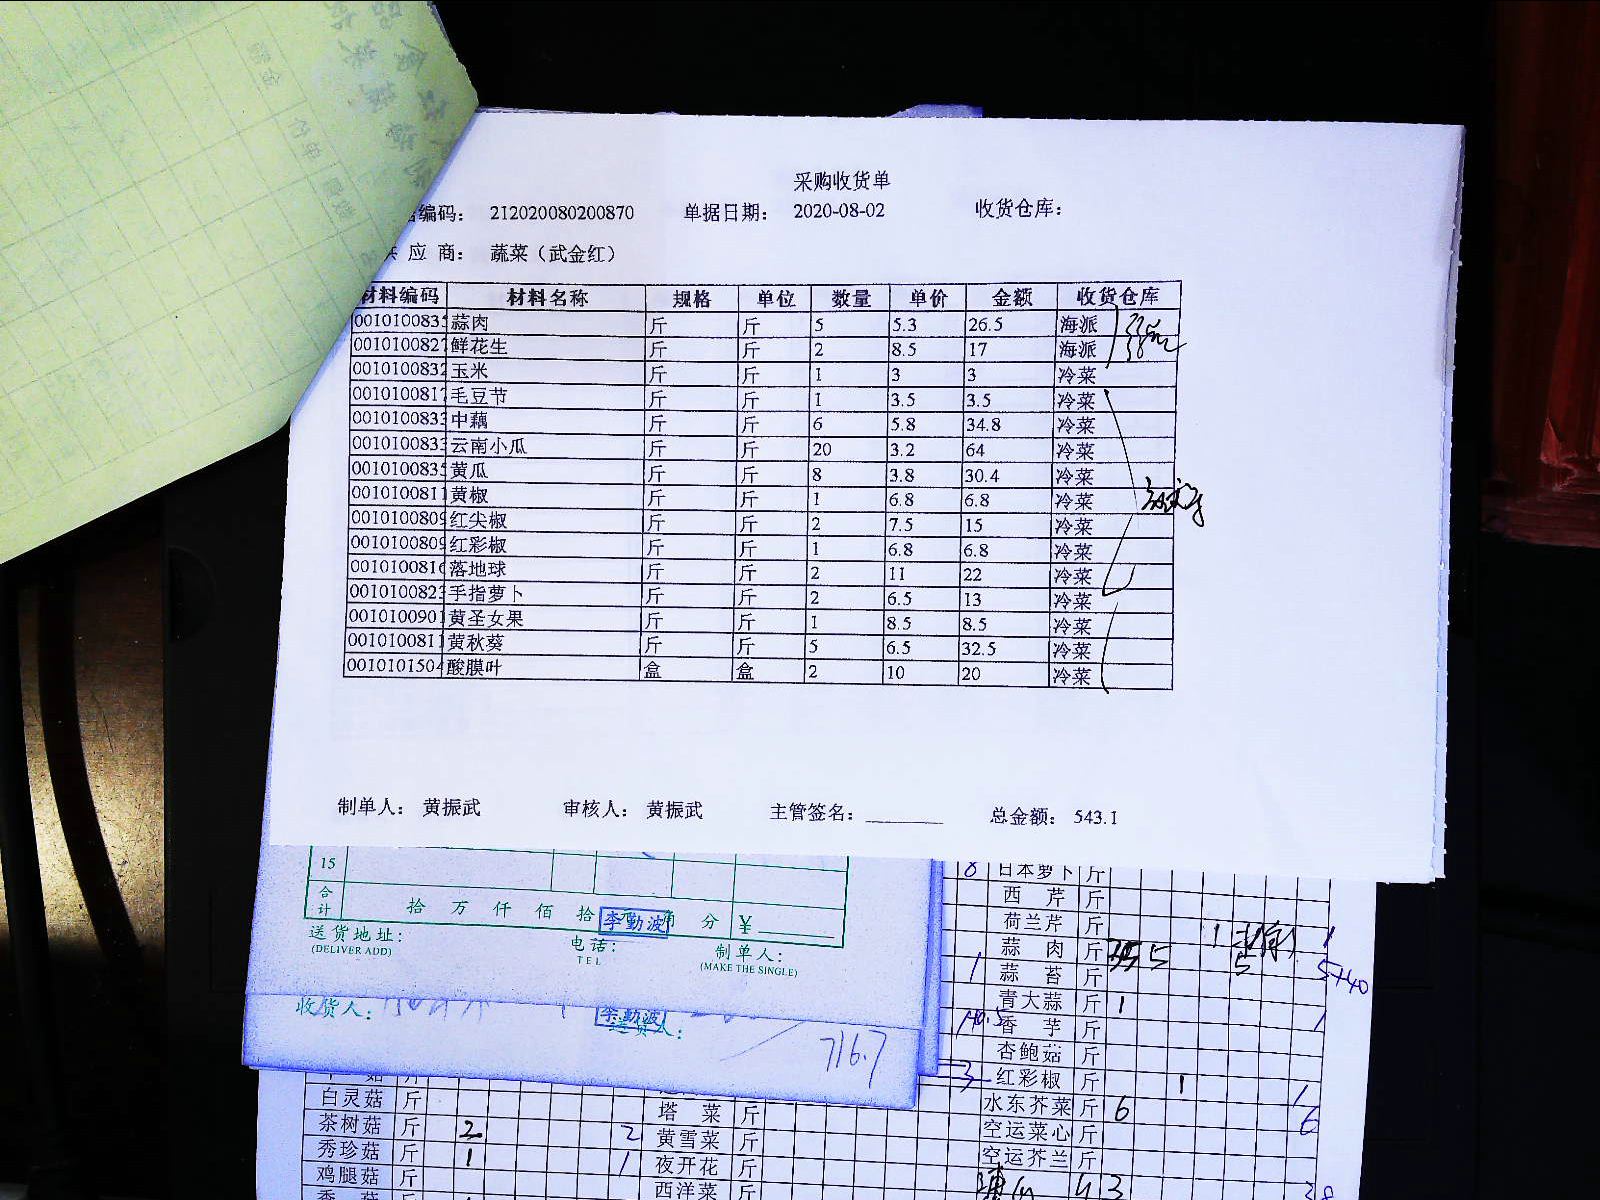 采购收货单
编码： 212020080200870 单据日期： 2020-08-02 收货仓库：
应 商： 蔬菜（武金红）
材料编码 材料名称 规格 单位 数量 单价 金额 收货仓库
0010100835 蒜肉 斤 斤 5 5.3 26.5 海派
0010100827 鲜花生 斤 斤 2 8.5 17 海派
0010100832 玉米 斤 斤 1 3 3 冷菜
0010100817 毛豆节 斤 斤 1 3.5 3.5 冷菜
0010100833 中藕 斤 斤 6 5.8 34.8 冷菜
0010100833 云南小瓜 斤 斤 20 3.2 64 冷菜
0010100835 黄瓜 斤 斤 8 3.8 30.4 冷菜
0010100811 黄椒 斤 斤 1 6.8 6.8 冷菜
0010100809 红尖椒 斤 斤 2 7.5 15 冷菜
0010100809 红彩椒 斤 斤 1 6.8 6.8 冷菜
0010100816 落地球 斤 斤 2 11 22 冷菜
0010100823 手指萝卜 斤 斤 2 6.5 13 冷菜
0010100901 黄圣女果 斤 斤 1 8.5 8.5 冷菜
0010100811 黄秋葵 斤 斤 5 6.5 32.5 冷菜
0010101504 酸膜叶 盒 盒 2 10 20 冷菜
制单人： 黄振武 审核人： 黄振武 主管签名： 总金额： 543.1
15
合计 拾 万 仟 佰 拾 元 角 分 ¥
李勤波
送货地址： 电话： 制单人：
(DELIVER ADD) TEL (MAKE THE SINGLE)
收货人： 李勤波
716.7
8 日本萝卜 斤
西 芹 斤
荷兰芹 斤 1 1
蒜 肉 斤 5 5 5+40
1 蒜 苔 斤
青大蒜 斤 1 1
香 芋 斤
杏鲍菇 斤
3 红彩椒 斤 1 1
水东芥菜 斤 6 6
空运菜心 斤
空运芥兰 斤
白灵菇 斤 塔 菜 斤
茶树菇 斤 2 2 黄雪菜 斤
秀珍菇 斤 1 1 夜开花 斤
鸡腿菇 斤 西洋菜 斤